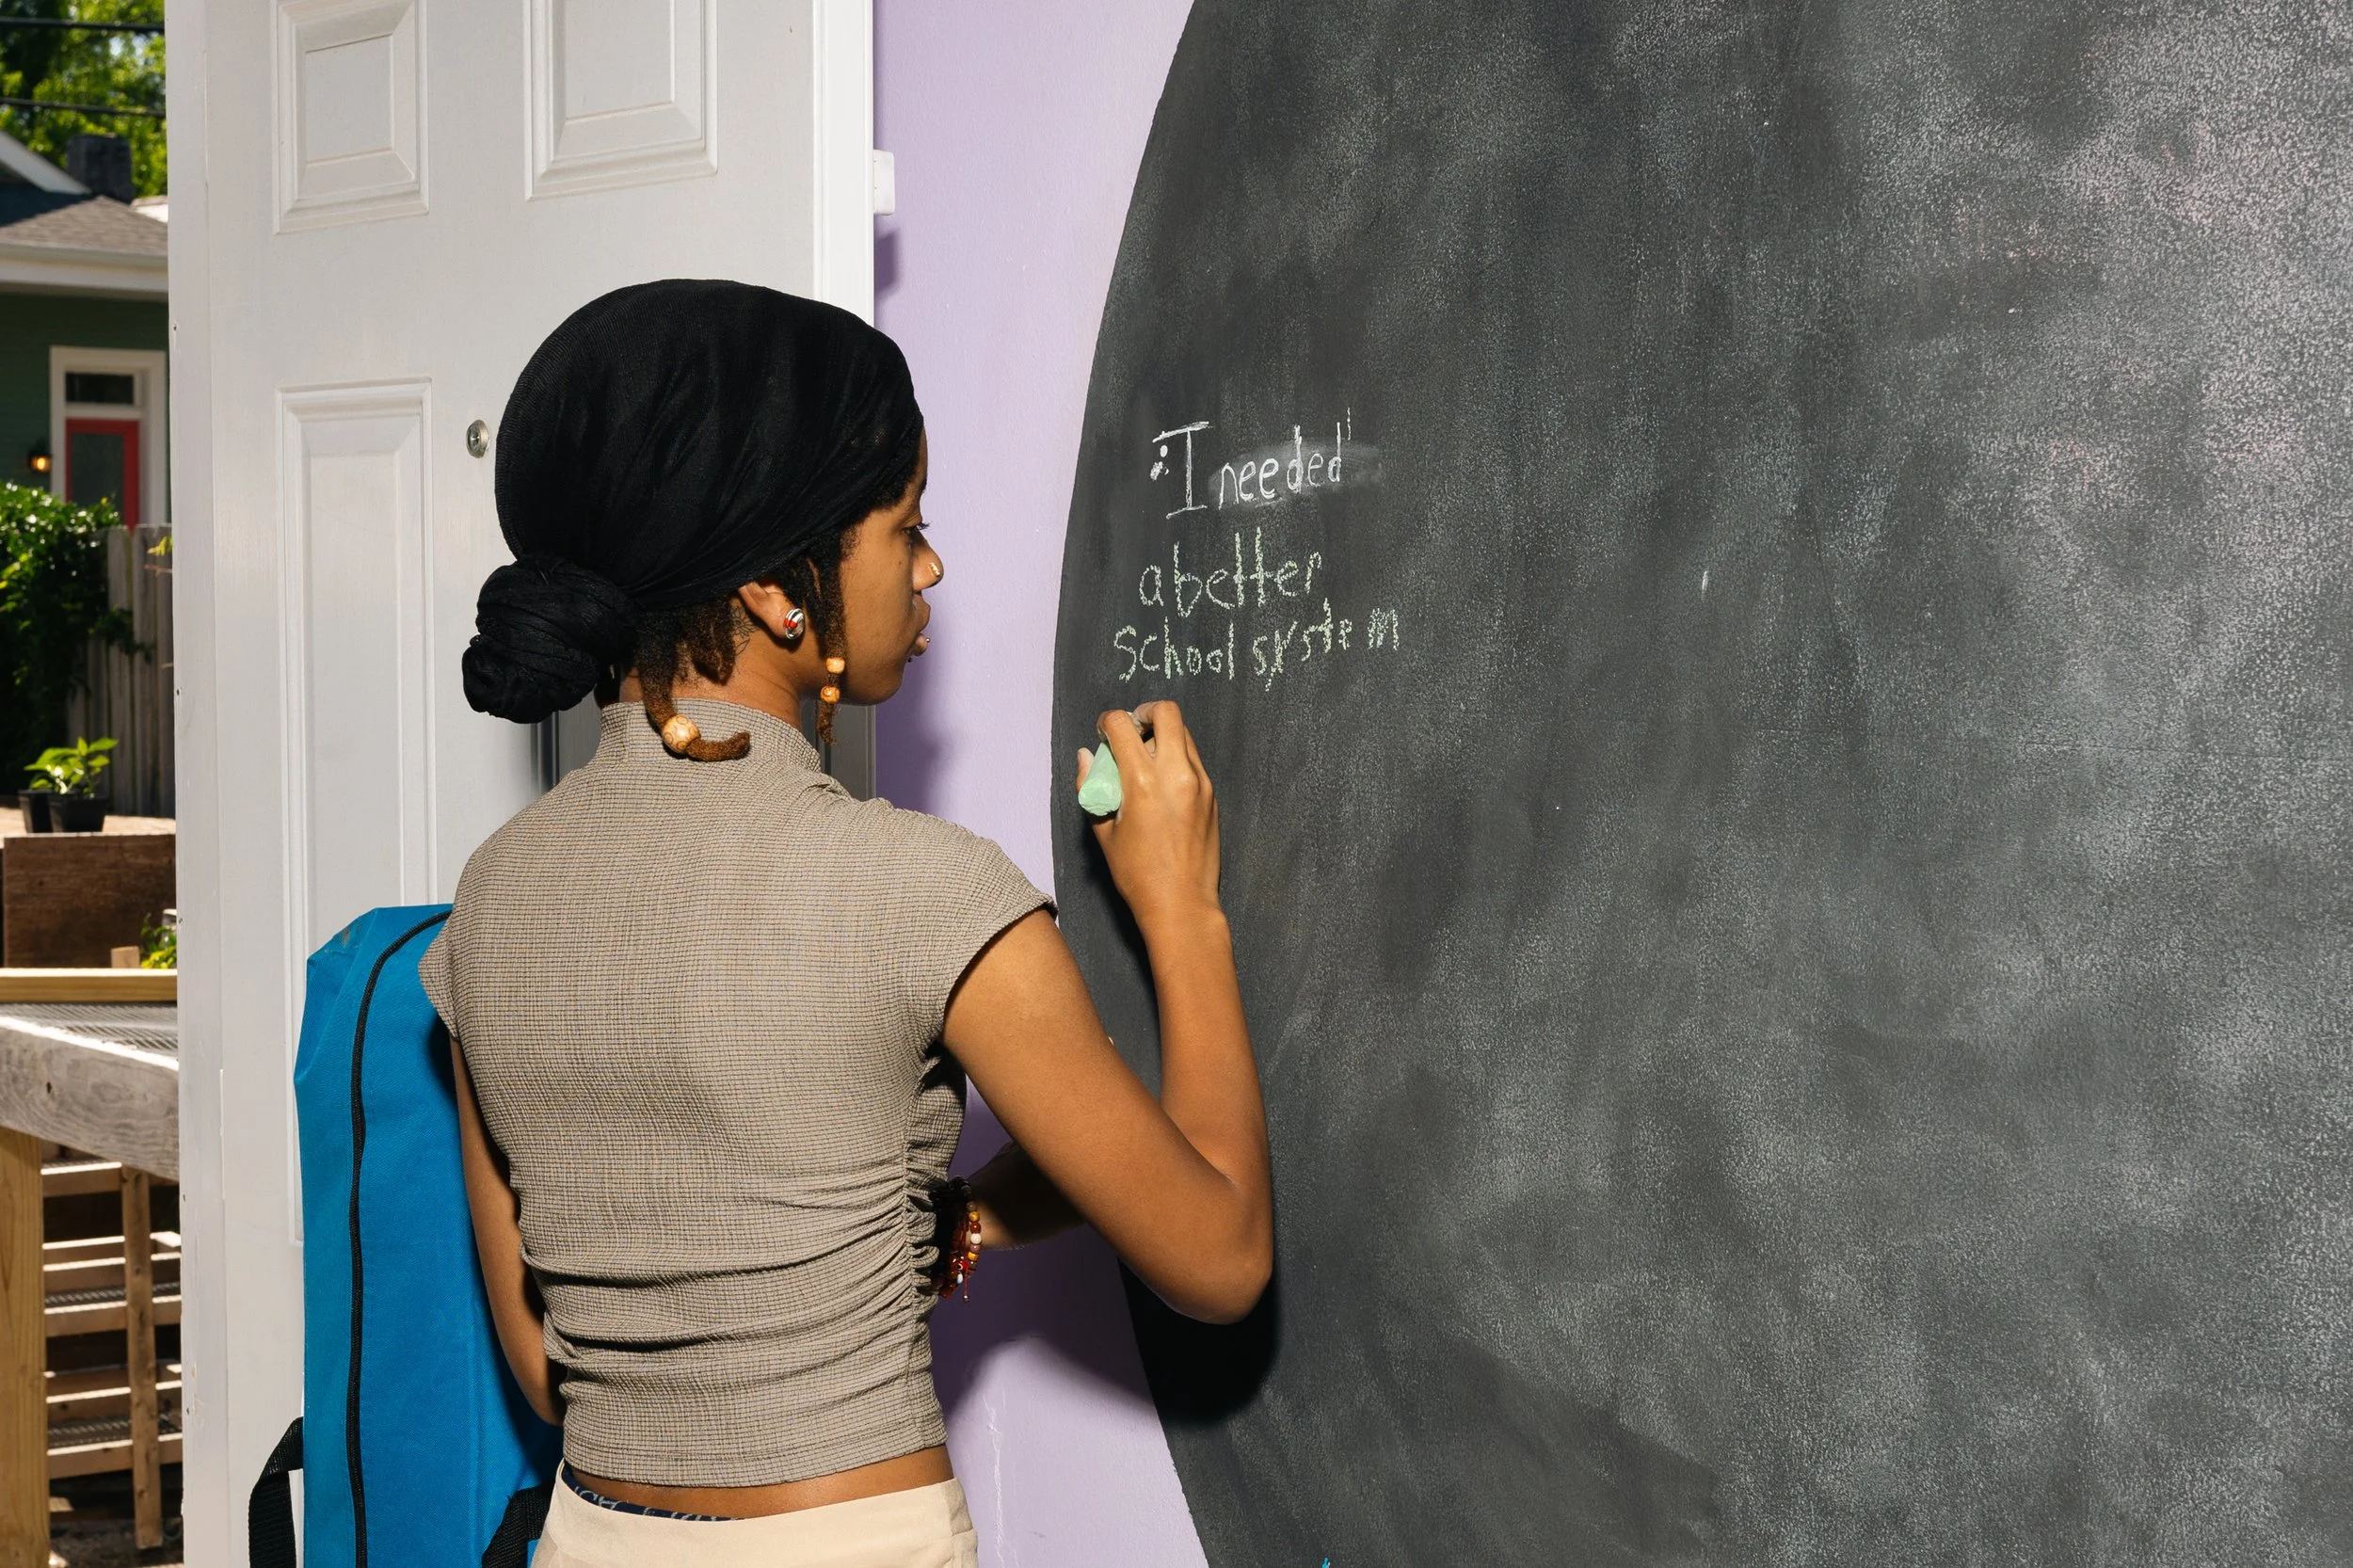 "I needed
a better
school system